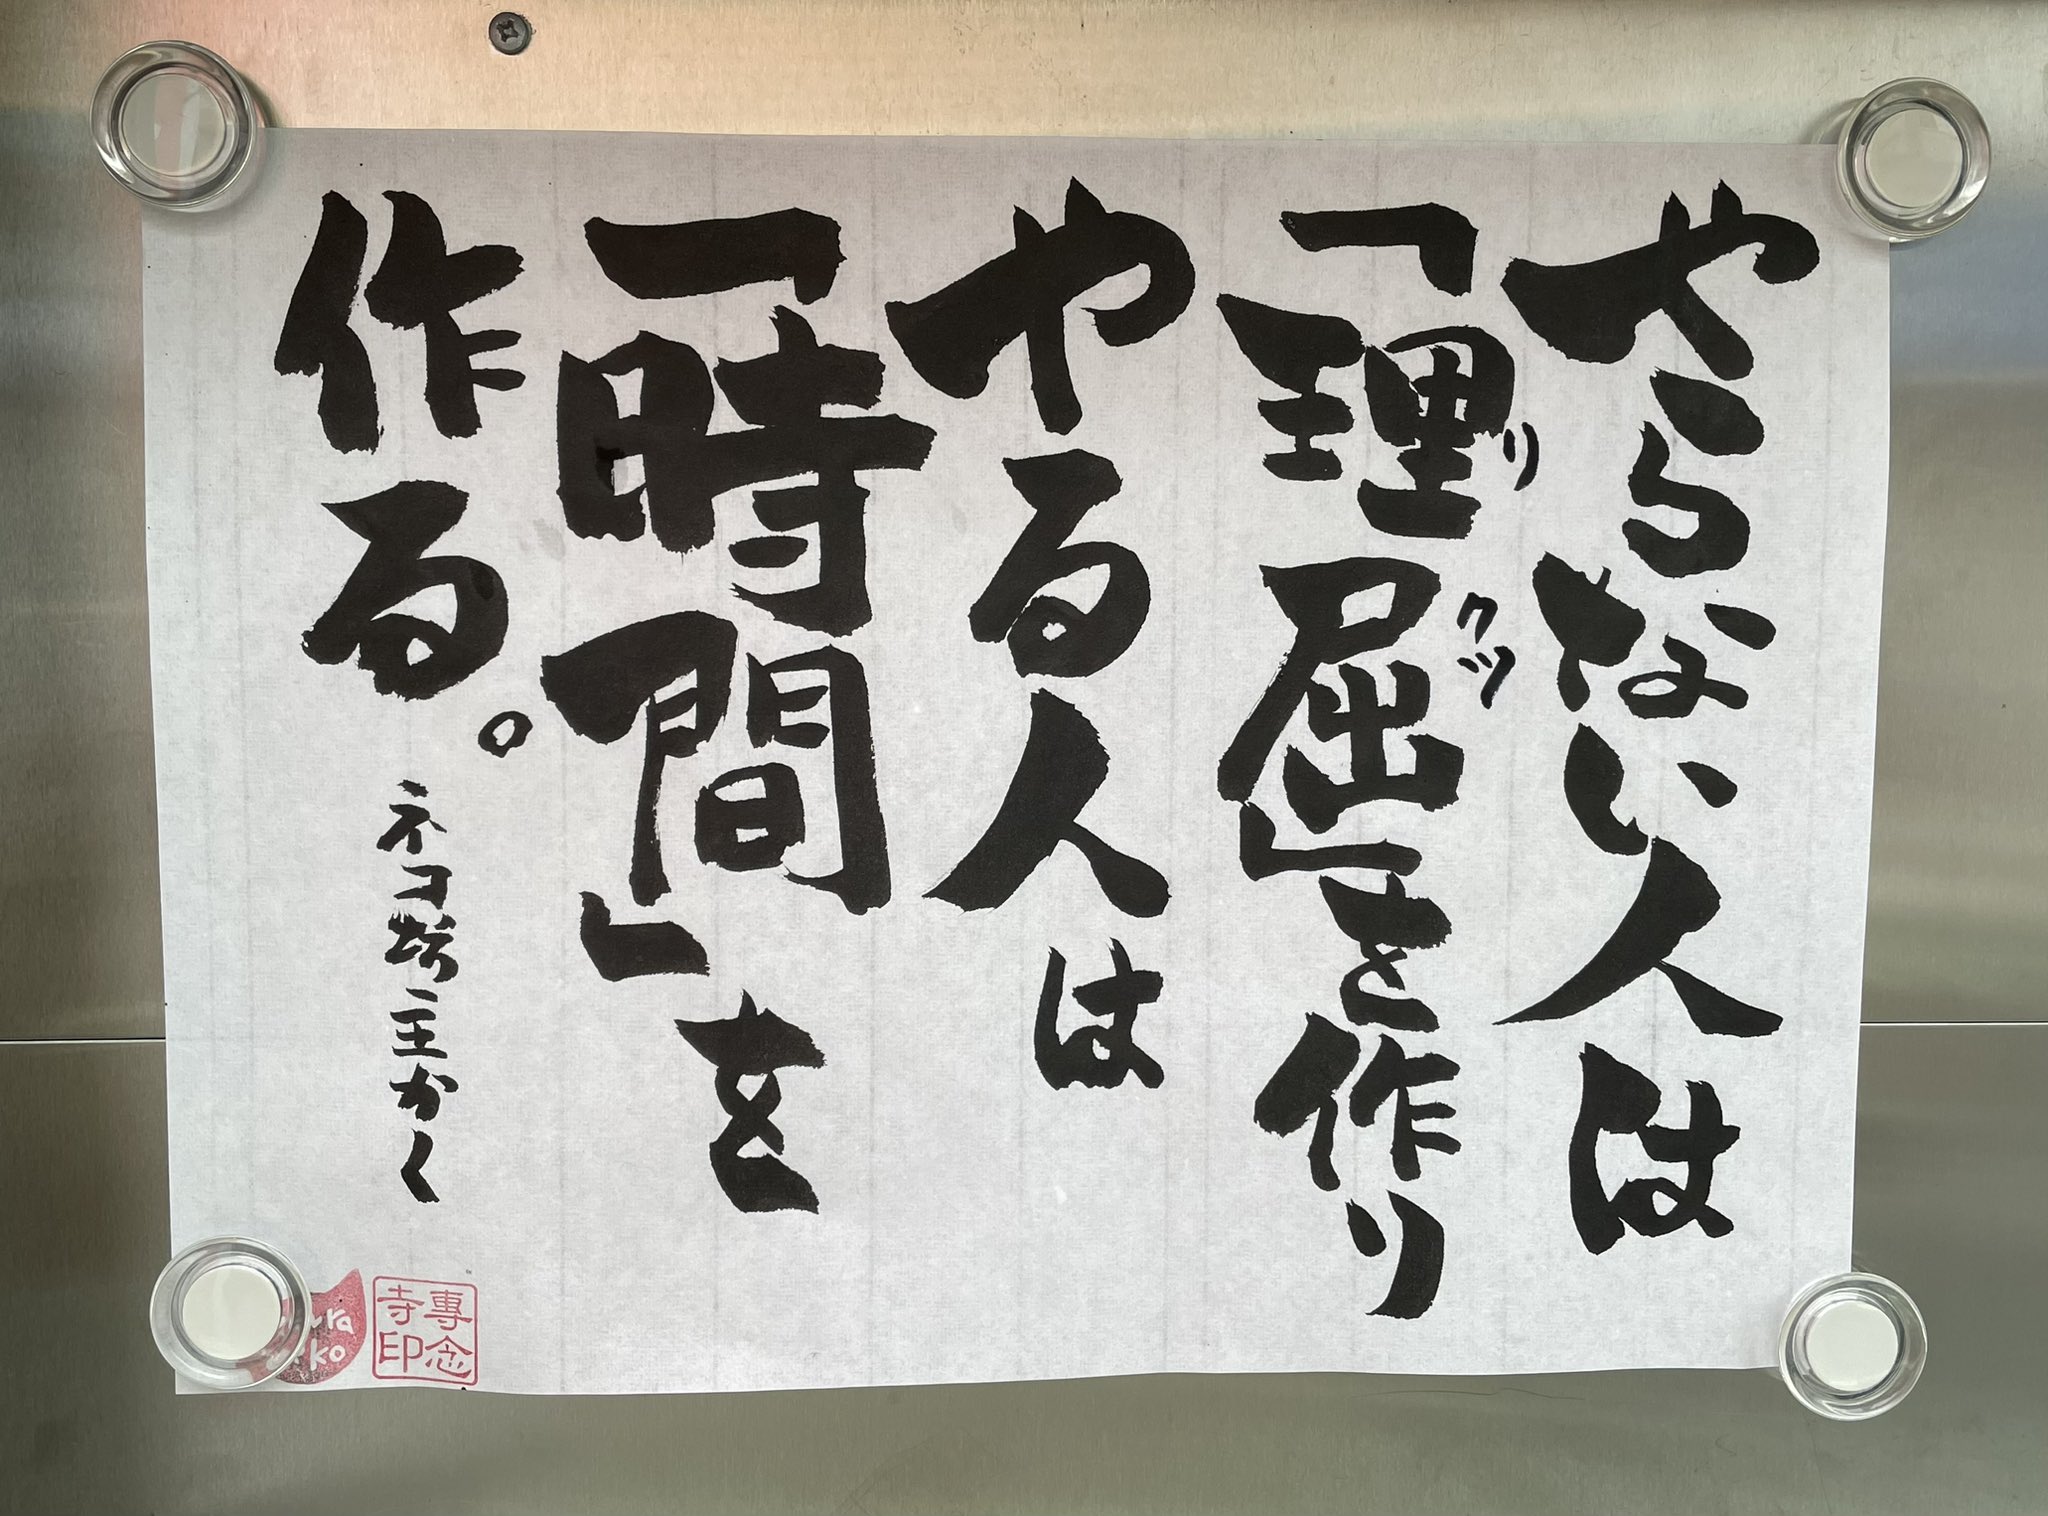 やらない人は
「理屈」を作り
リクツ
やる人は
「時間」を
作る。
ネコ坊主かく
專念
寺印
ra
ko